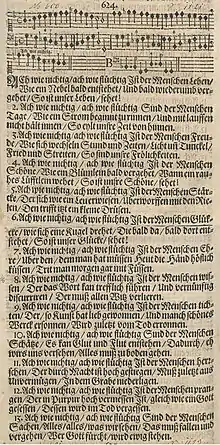 624.
ACh wie nichtig/ach wie flüchtig Ist der Menschen Leben/
Wie ein Nebel bald entstehet/Und bald wieder ver-
gehet/So ist unser Leben/sehet!
2. Ach wie nichtig/ach wie flüchtig Sind der Menschen
Tage/Wie ein Strom beginnt zu rinnen/Und mit lauffen
nicht hält innen/So vehrt unsre Zeit von hinnen.
3. Ach wie nichtig/ach wie flüchtig Ist der Menschen Freu-
de/Wie sich wechseln Stund und Zeiten/Licht und Dunckel/
Fried und Streiten/So sind unsre Frölichkeiten.
4. Ach wie nichtig/ach wie flüchtig Ist der Menschen
Schöne/Wie ein Blümlein bald vergehet/Wann ein rau-
hes Lüfftlein wehet/So ist unsre Schöne/sehet!
5. Ach wie nichtig/ach wie flüchtig Ist der Menschen Stär-
cke/Der sich wie ein Leu erwiesen/Uberworffen mit den Rie-
sen/Den wirfft ein kleine Drüsen.
6. Ach wie nichtig/ach wie flüchtig Ist der Menschen Glü-
cke/wie sich eine Kugel drehet/Die bald da/bald dort ent-
stehet/So ist unser Glücke/sehet!
7. Ach wie nichtig/ach wie flüchtig Ist der Menschen Eh-
re/Uber den/dem man hat müssen Heut die Händ höflich
küssen/Tut man morgen gar mit Füssen.
8. Ach wie nichtig/ach wie flüchtig Ist der Menschen wis-
sen/Der das Wort kan trefflich führen/Und vernünfftig
discurriren/Der muß alles Witz verlieren.
9. Ach wie nichtig/ach wie flüchtig Ist der Menschen tich-
ten/Der/so Kunst hat lieb gewonnen/Und manch schönes
Werck ersonnen/Wird zuletzt vom Tod erronnen.
10. Ach wie nichtig/ach wie flüchtig Sind der Menschen
Schätze/Es kan Glut und Flut entstehen/Dadurch/eh
wirs uns versehen/Alles muß zu boden gehen.
11. Ach wie nichtig/ach wie flüchtig Ist der Menschen herr-
schen/Der durch Macht ist hoch gestiegen/Muß zuletzt aus
unvermügen/In dem Grabe niederliegen.
12. Ach wie nichtig/ach wie flüchtig Ist der Menschen pran-
gen/Der in Purpur hoch vermessen/Ist/gleich wie ein Gott
gesessen/Dessen wird im Tod vergessen.
13. Ach wie nichtig/ach wie flüchtig Sind der Menschen
Sachen/Alles/alles/was wir sehen/Das muß fallen und
vergehen/Wer Gott fürcht/wird ewig stehen.